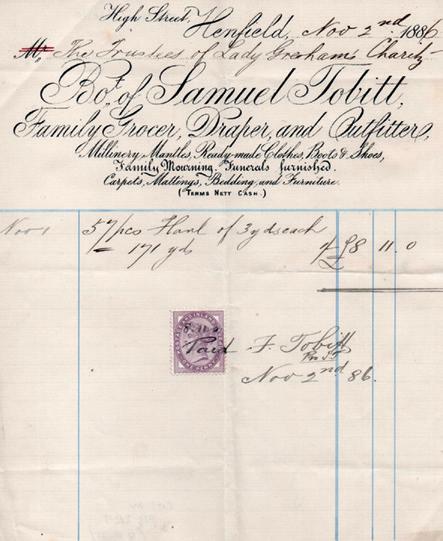 High Street,
Henfield, Nov 2nd 1886
Mr The Trustees of Lady Gresham's Charity
Bot. of Samuel Tobitt,
Family Grocer, Draper, and Outfitter,
Millinery, Mantles, Ready-made Clothes, Boots & Shoes,
Family Mourning. Funerals furnished.
Carpets, Mattings, Bedding, and Furniture.
(TERMS NETT CASH.)
Nov 1 57 pcs Flanl of 3 yds each
= 171 yds £8 11.0
Paid F. Tobitt
Nov 2nd 86.